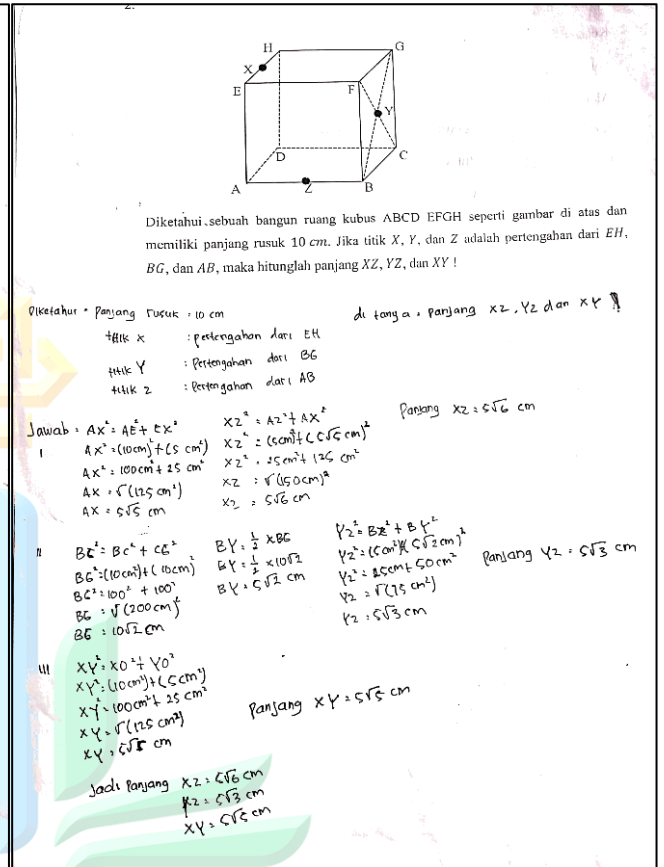 2.
H
G
X
E
F
Y
D
C
A
Z
B
Diketahui sebuah bangun ruang kubus ABCD EFGH seperti gambar di atas dan
memiliki panjang rusuk 10 cm. Jika titik X, Y, dan Z adalah pertengahan dari EH,
BG, dan AB, maka hitunglah panjang XZ, YZ, dan XY !
Diketahui : Panjang rusuk : 10 cm
di tanya : panjang XZ, YZ dan XY
titik X : pertengahan dari EH
titik Y : Pertengahan dari BG
titik Z : Pertengahan dari AB
Jawab :
I
AX² = AE² + EX²
AX² = (10cm)² + (5 cm²)
AX² = 100cm² + 25 cm²
AX = √(125 cm²)
AX = 5√5 cm
XZ² = AZ² + AX²
XZ² = (5cm)² + (5√5 cm)²
XZ² = 25cm² + 125 cm²
XZ = √(150cm)²
XZ = 5√6 cm
Panjang XZ = 5√6 cm
II
BG² = BC² + CG²
BG² = (10cm)² + (10cm)²
BG² = 100² + 100²
BG = √(200cm)²
BG = 10√2 cm
BY = ½ × BG
BY = ½ × 10√2
BY = 5√2 cm
YZ² = BZ² + BY²
YZ² = (5cm²)(5√2cm)²
YZ² = 25cm + 50cm²
YZ = √(75 cm²)
YZ = 5√3 cm
Panjang YZ = 5√3 cm
III
XY² = XO² + YO²
XY² = (10cm²) + (5cm²)
XY² = 100cm² + 25 cm²
XY = √(125 cm²)
XY = 5√5 cm
Panjang XY = 5√5 cm
Jadi Panjang XZ = 5√6 cm
YZ = 5√3 cm
XY = 5√5 cm